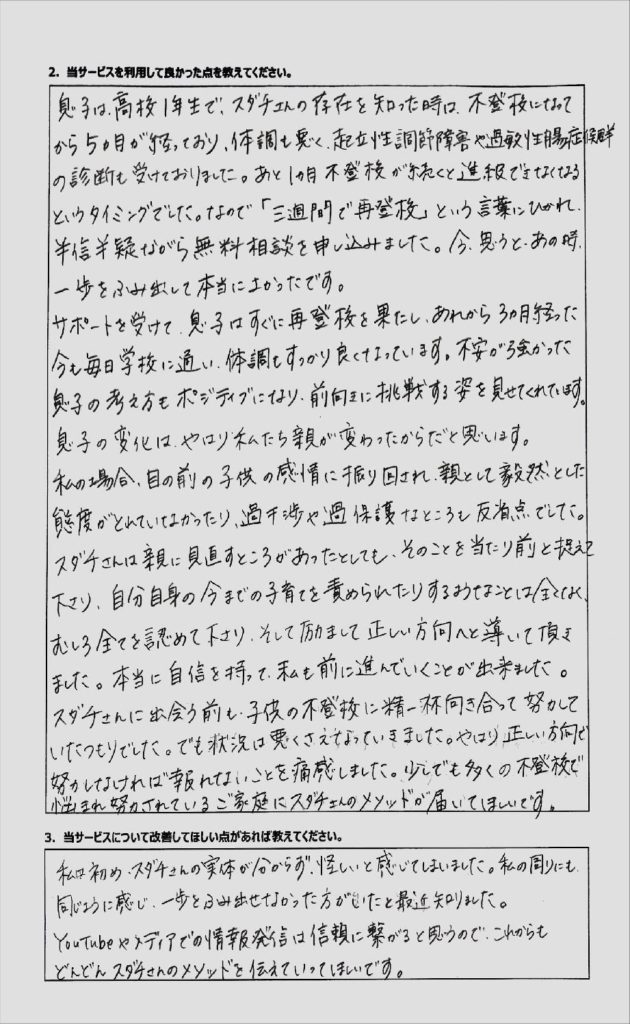 2. 当サービスを利用して良かった点を教えてください。
息子は、高校1年生で、スダチさんの存在を知った時は、不登校になって
から5ヵ月が経っており、体調も悪く、起立性調節障害や過敏性腸症候群
の診断も受けておりました。あと1ヵ月不登校が続くと進級できなくなる
というタイミングでした。なので「三週間で再登校」という言葉にひかれ、
半信半疑ながら無料相談を申し込みました。今、思うと、あの時、
一歩をふみ出して本当によかったです。
サポートを受けて、息子はすぐに再登校を果たし、あれから3ヵ月経った
今も毎日学校に通い、体調もすっかり良くなっています。不安が強かった
息子の考え方もポジティブになり、前向きに挑戦する姿を見せてくれています。
息子の変化は、やはり私たち親が変わったからだと思います。
私の場合、目の前の子供の感情に振り回され、親として毅然とした
態度がとれていなかったり、過干渉や過保護なところも反省点でした。
スダチさんは親に見直すところがあったとしても、そのことを当たり前と捉えて
下さり、自分自身の今までの子育てを責められたりするようなことは全くなく、
むしろ全てを認めて下さり、そして励まして正しい方向へと導いて頂き
ました。本当に自信を持って、私も前に進んでいくことが出来ました。
スダチさんに出会う前も、子供の不登校に精一杯向き合って努力して
いたつもりでした。でも状況は悪くさえなっていきました。やはり正しい方向で
努力しなければ報れないことを痛感しました。少しでも多くの不登校で
悩まれ努力されているご家庭にスダチさんのメソッドが届いてほしいです。
3. 当サービスについて改善してほしい点があれば教えてください。
私は初め、スダチさんの実体が分からず、怪しいと感じてしまいました。私の周りにも
同じように感じ、一歩をふみ出せなかった方がいたと最近知りました。
YouTubeやメディアでの情報発信は信頼に繋がると思うので、これからも
どんどんスダチさんのメソッドを伝えていってほしいです。